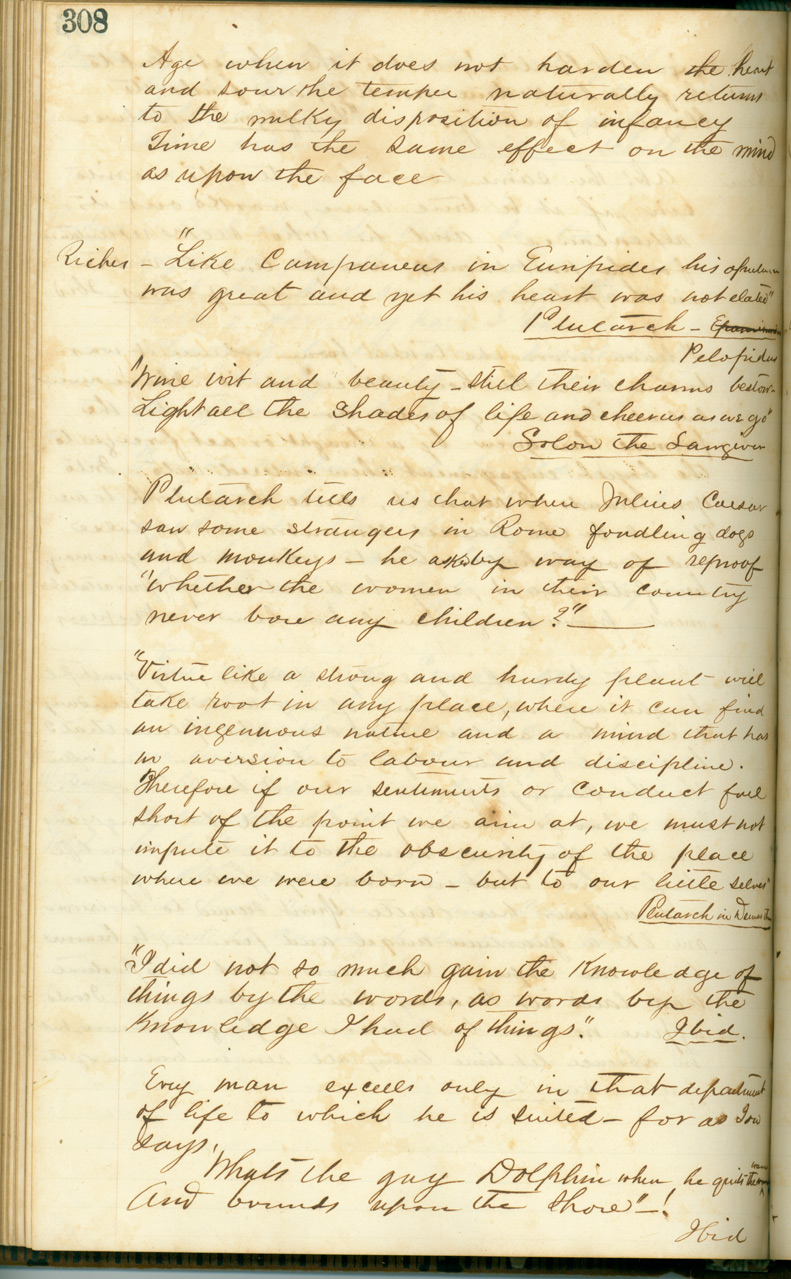 308
Age when it does not harden the heart
and sour the temper naturally returns
to the milky disposition of infancy
Time has the same effect on the mind
as upon the face
Riches - "Like Campaneus in Euripides his opulence
was great and yet his heart was not elated"
Plutarch -
Pelopidas
"Wine wit and beauty - still their charms bestow -
Light all the shades of life and cheer us as we go"
Solon the Lawgiver
Plutarch tells us that when Julius Caesar
saw some strangers in Rome fondling dogs
and monkeys - he asked by way of reproof
"whether the women in their country
never bore any children?"
"Virtue like a strong and hardy plant will
take root in any place, where it can find
an ingenuous nature and a mind that has
no aversion to labour and discipline.
Therefore if our sentiments or conduct fall
short of the point we aim at, we must not
impute it to the obscurity of the place
where we were born - but to our little selves"
Plutarch in Demosthe
"I did not so much gain the Knowledge of
things by the words, as words by the
Knowledge I had of things". Ibid.
Every man excells only in that department
of life to which he is suited - for as Ion
says,
"Whats the gay Dolphin when he quits the waves
And bounds upon the Shore" - !
Ibid